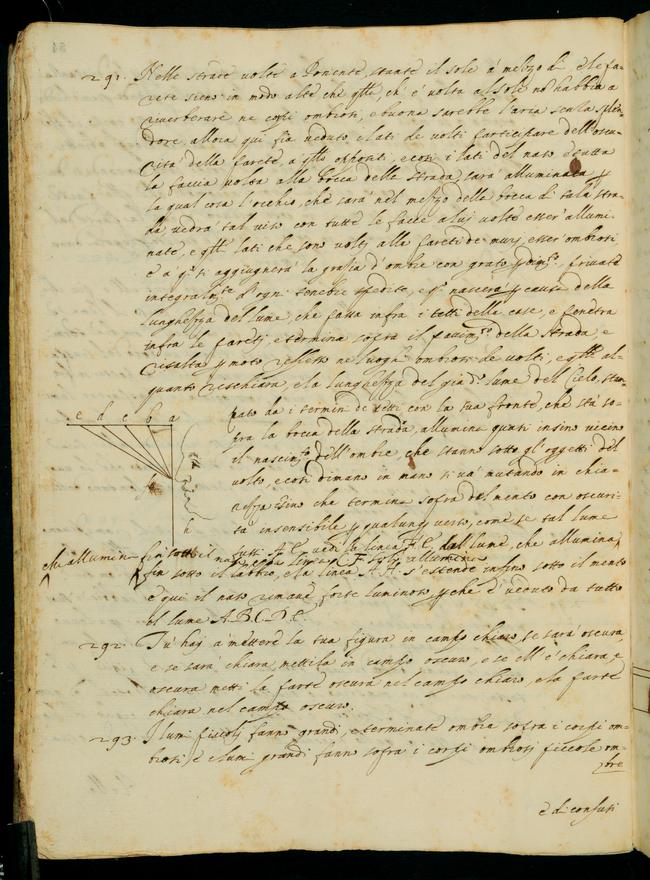 291. Nelle strade volte a Ponente, stante il sole a mezzo dì e le pa-
rete sieno in modo alte che q.lla ch' è volta al sole no' habbia a
riverberare ne corpi ombrosi, e buona sarebbe l'aria senza splen-
dore, allora qui fia veduto e lati de volti participare dell'oscu-
rità delle parete, a q.llo oppositi, e così i lati del naso e tutta
la faccia volta alla bocca della strada, sarà alluminata p
la qual cosa l'occhio, che sarà nel mezzo della bocca di tal stra-
da vedrà tal viso con tutte le faccie a lui volte esser' allumi-
nate, e q.lli lati che sono volti alla pareti de muri, esser' ombrosi
e a q.sti aggiugnerà la grazia d'ombre con grato, privato
integralm.te d'ogni tenebre spedite, e q.sto nascerà p causa della
lunghezza del lume, che passa infra i tetti delle case, e penetra
infra le pareti, e termina sopra il pavim.to della strada, e
risalta p moto reflesso ne luoghi ombrosi de volti, e q.lli al-
quanto rischiara, e la lunghezza del già d.o lume del Cielo, stam-
pato da i termini de tetti con la sua fronte, che stà so-
pra la bocca della strada, allumina quasi insino vicino
il nascim.to dell'ombre, che stanno sotto gl'oggetti del
volto, e così di mano in mano si và mutando in chia-
rezza sino che termina sopra del mento con oscuri-
tà insensibile p qualunq; verso, come se tal lume
e d c b a
f
h
che allumina fin sotto il naso e la linea C F solo allumina
fussi A E. vedi la linea F. E. del lume, che allumina
fin sotto il labbio, e la linea A. H. s'estende infino sotto il mento
e qui il naso rimane forte luminoso, p che è veduto da tutto
il lume A. B. C. D. E.
292. Tu' hai a mettere la tua figura in campo chiaro, se sarà oscura
e se sarà chiara, mettila in campo oscuro, e se ell' è chiara, e
oscura metti la parte oscura nel campo chiaro, e la parte
chiara nel campo oscuro.
293. I lumi piccoli fanno grandi, e terminate ombre sopra i corpi om-
brosi, e e lumi grandi fanno sopra i corpi ombrosi piccole om-
bre
e di confusi